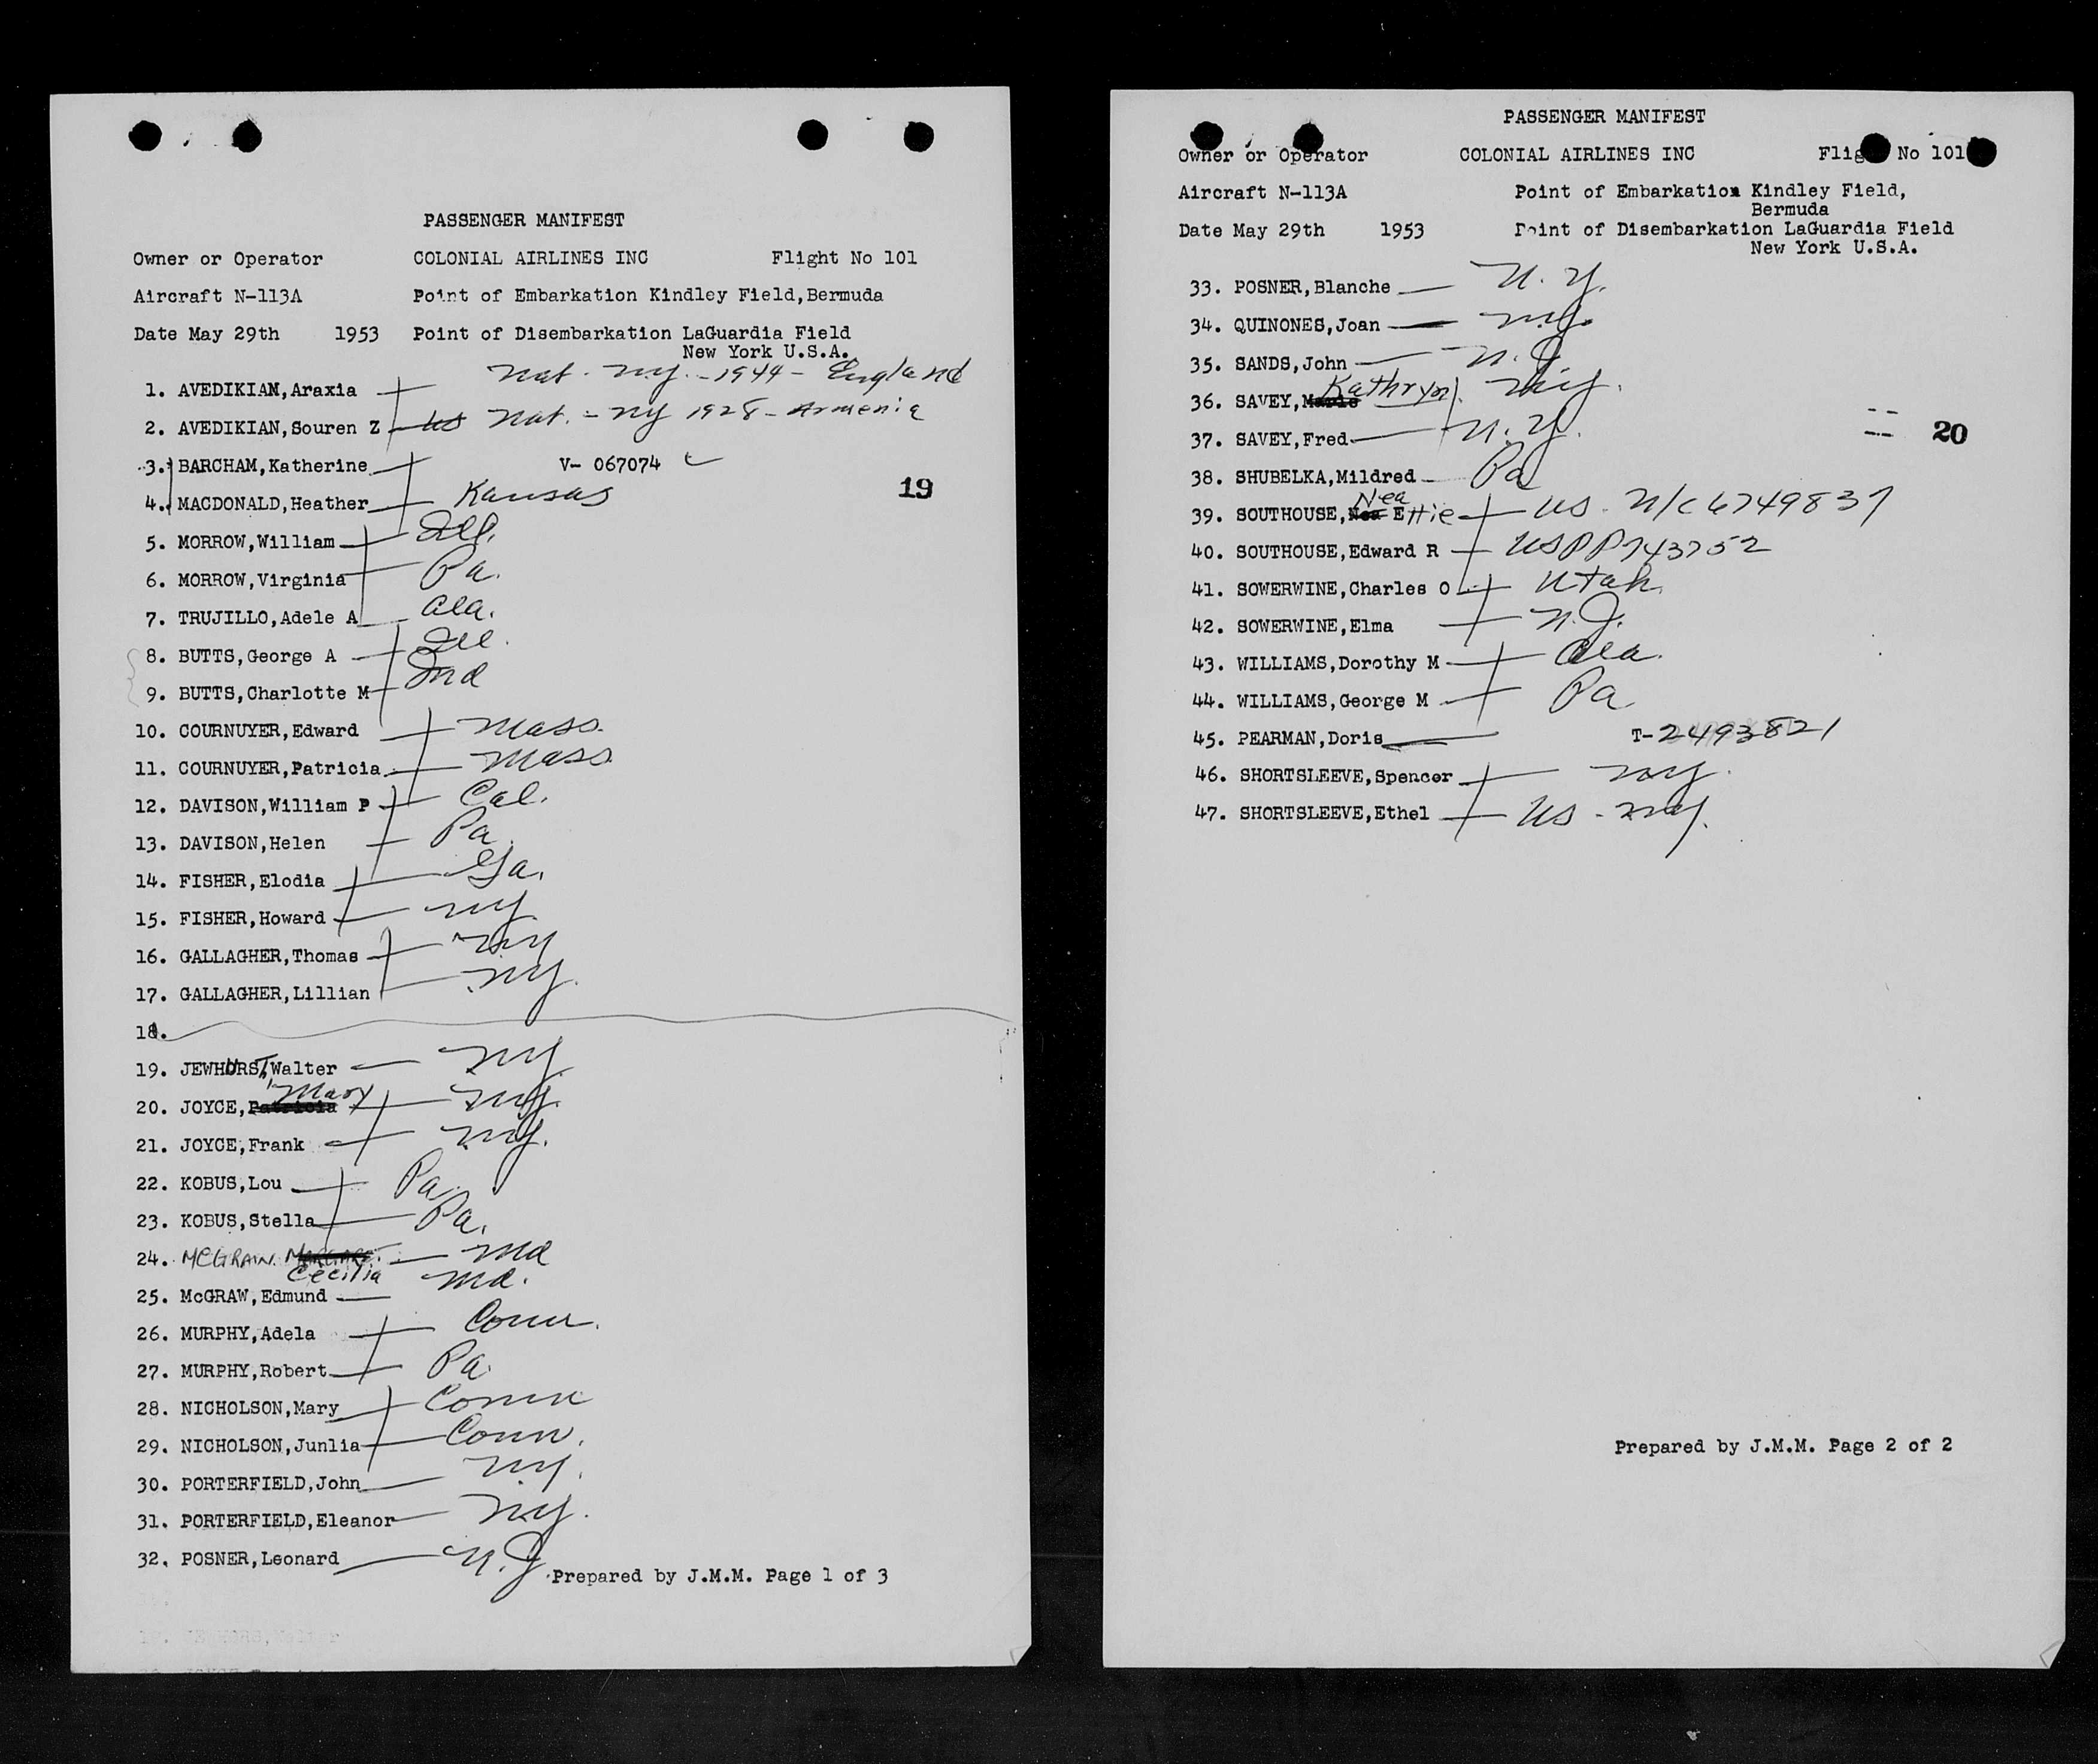 PASSENGER MANIFEST
Owner or Operator COLONIAL AIRLINES INC Flight No 101
Aircraft N-113A Point of Embarkation Kindley Field, Bermuda
Date May 29th 1953 Point of Disembarkation LaGuardia Field
New York U.S.A.
1. AVEDIKIAN, Araxia Nat. N.Y. - 1944 - England
2. AVEDIKIAN, Souren Z US Nat. - NY 1928 - Armenia
3. BARCHAM, Katherine V- 067074
19
4. MACDONALD, Heather Kansas
5. MORROW, William Ill.
6. MORROW, Virginia Pa.
7. TRUJILLO, Adele A Ala.
8. BUTTS, George A Ill.
9. BUTTS, Charlotte M Ind
10. COURNUYER, Edward Mass.
11. COURNUYER, Patricia Mass
12. DAVISON, William P Cal.
13. DAVISON, Helen Pa.
14. FISHER, Elodia Ga.
15. FISHER, Howard NY.
16. GALLAGHER, Thomas NY
17. GALLAGHER, Lillian NY.
18.
19. JEWHURST, Walter NY.
20. JOYCE, Patricia Mary NY.
21. JOYCE, Frank NY.
22. KOBUS, Lou Pa.
23. KOBUS, Stella Pa.
24. MCGRAW Md
Cecilia Md.
25. McGRAW, Edmund
26. MURPHY, Adela Conn.
27. MURPHY, Robert Pa.
28. NICHOLSON, Mary Conn
29. NICHOLSON, Junlia Conn.
30. PORTERFIELD, John NY.
31. PORTERFIELD, Eleanor N.Y.
32. POSNER, Leonard N.J.
Prepared by J.M.M. Page 1 of 3
PASSENGER MANIFEST
Owner or Operator COLONIAL AIRLINES INC Flight No 101
Aircraft N-113A Point of Embarkation Kindley Field,
Bermuda
Date May 29th 1953 Point of Disembarkation LaGuardia Field
New York U.S.A.
33. POSNER, Blanche N.Y.
34. QUINONES, Joan N.Y.
35. SANDS, John N.J.
36. SAVEY, Marie Kathryn N.Y.
37. SAVEY, Fred N.Y.
20
38. SHUBELKA, Mildred Pa
39. SOUTHOUSE, Nea Ettie US. N/C 6749837
40. SOUTHOUSE, Edward R USPP743752
41. SOWERWINE, Charles O Utah
42. SOWERWINE, Elma N.J.
43. WILLIAMS, Dorothy M Ala.
44. WILLIAMS, George M Pa
45. PEARMAN, Doris T-2493821
46. SHORTSLEEVE, Spencer NY.
47. SHORTSLEEVE, Ethel US - NY.
Prepared by J.M.M. Page 2 of 2